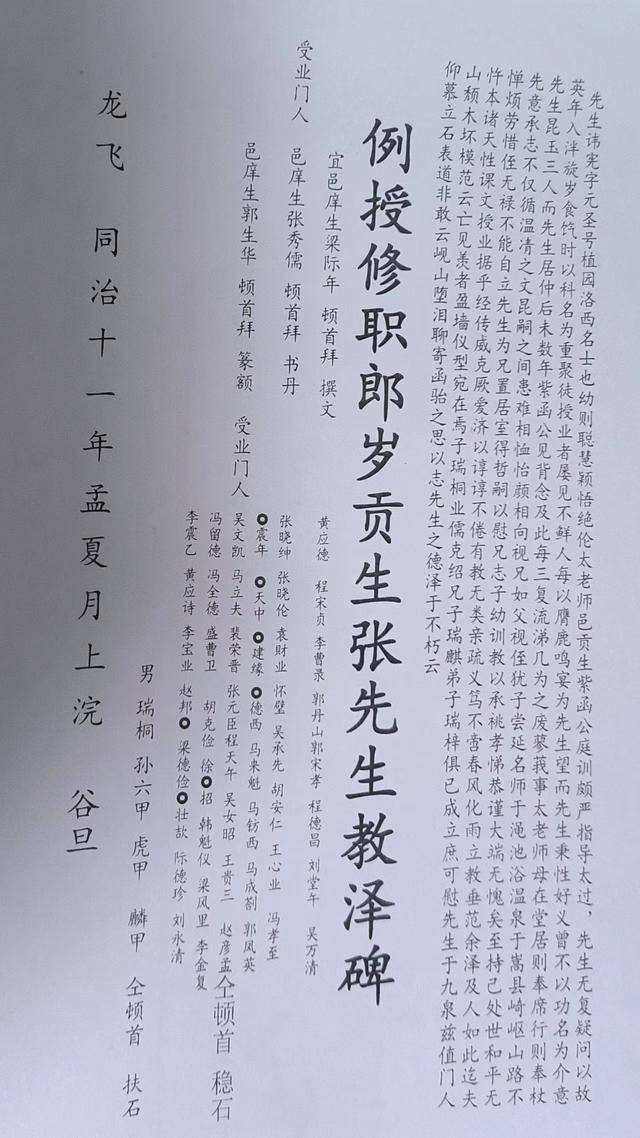 先生讳宪字元圣号植园洛西名士也幼则聪慧颖悟绝伦太老师邑贡生紫函公庭训颇严指导太过，先生无复疑问以故
英年入泮旋岁食饩时以科名为重聚徒授业者屡见不鲜人每以膺鹿鸣宴为先生望而先生秉性好义曾不以功名为介意
先生昆玉三人而先生居仲后未数年紫函公见背念及此每三复流涕几为之废蓼莪事太老师母在堂居则奉席行则奉杖
先意承志不仅循温清之文昆嗣之间患难相恤怡颜相向视兄如父视侄犹子尝延名师于渑池浴温泉于嵩县崎岖山路不
惮烦劳惜侄无禄不能自立先生为兄置居室得哲嗣以慰兄志子幼训教以承祧孝悌恭谨大端无愧矣至持己处世和平无
忤本诸天性课文授业据乎经传威克厥爱济以谆谆不倦有教无类亲疏义笃不啻春风化雨立教垂范余泽及人如此迄夫
山颓木坏模范云亡见羡者盈墙仪型宛在焉子瑞桐业儒克绍兄子瑞麒弟子瑞梓俱已成立庶可慰先生于九泉兹值门人
仰慕立石表道非敢云岘山堕泪聊寄函骀之思以志先生之德泽于不朽云
例授修职郎岁贡生张先生教泽碑
宜邑庠生梁际年 顿首拜 撰文
受业门人 邑庠生张秀儒 顿首拜 书丹
邑庠生郭生华 顿首拜 篆额
受业门人
黄应德 程宋贞 李曹录 郭丹山 郭宋孝 程德昌 刘堂午 吴万清
张晓绅 张晓伦 袁财业 怀璧 吴承先 胡安仁 王心业 冯孝至
震年 天中 建缘 德西 马来魁 马钫西 马成劄 郭凤英
吴文凯 马立夫 裴荣晋 张元臣 程天午 吴女昭 王贵三 赵彦孟 仝顿首 稳石
冯留德 冯全德 盛曹卫 胡克俭 徐招 韩魁仪 梁风里 李金复
李震乙 黄应诗 李宝业 赵邦 梁德俭 壮故 阮德珍 刘永清
男 瑞桐 孙 六甲 虎甲 麟甲 仝顿首 扶石
龙飞 同治十一年孟夏月上浣 谷旦